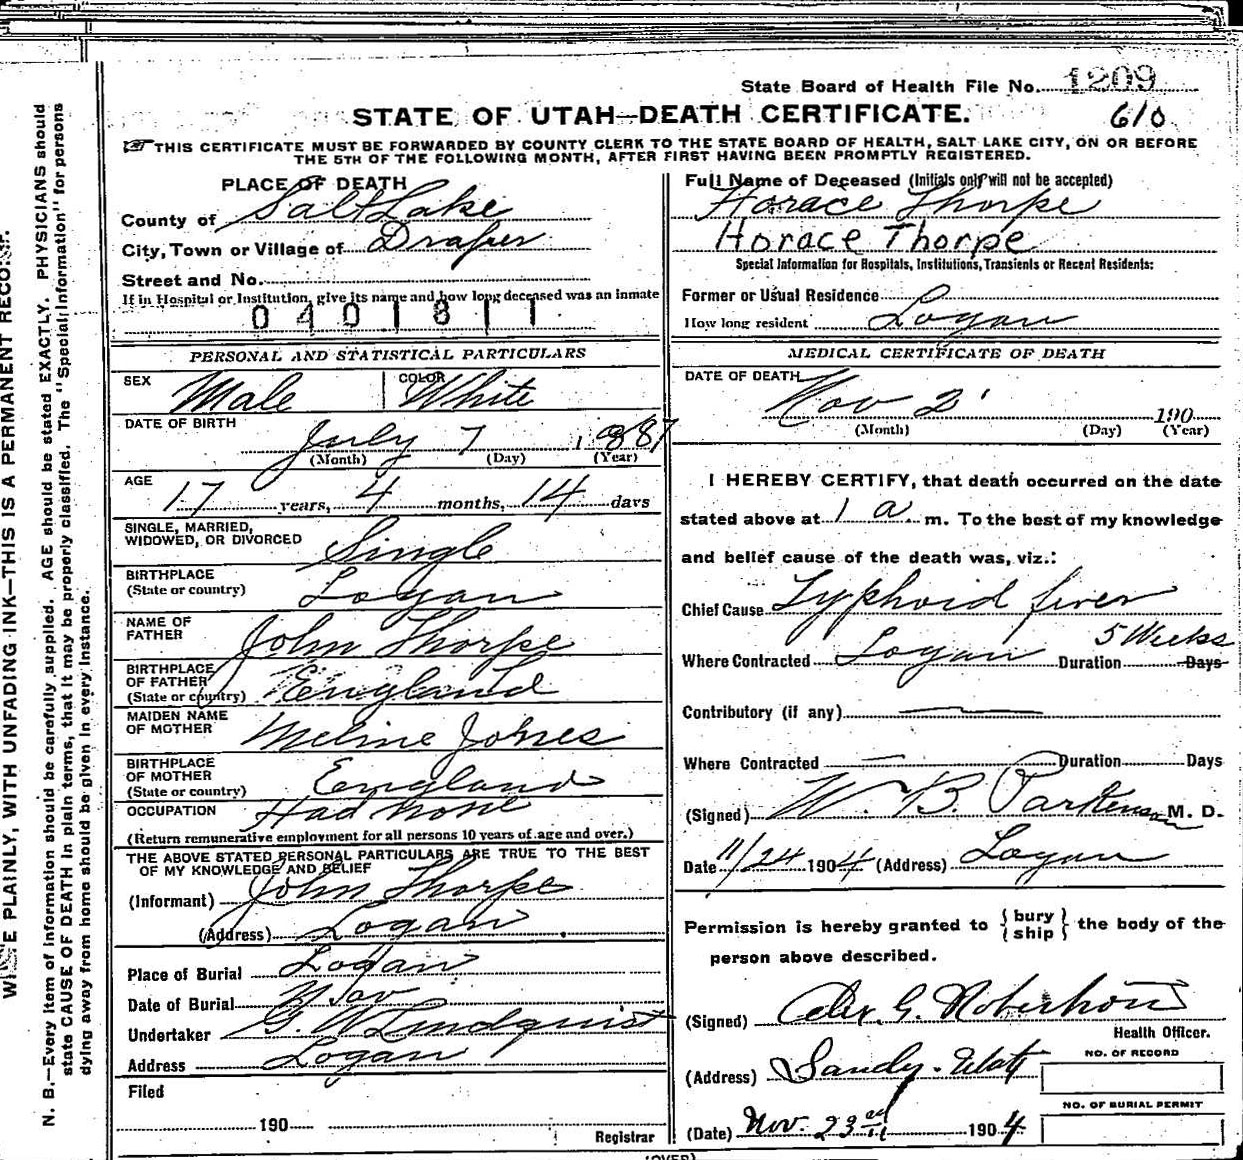 State Board of Health File No. 1209
STATE OF UTAH—DEATH CERTIFICATE. 610
THIS CERTIFICATE MUST BE FORWARDED BY COUNTY CLERK TO THE STATE BOARD OF HEALTH, SALT LAKE CITY, ON OR BEFORE
THE 5TH OF THE FOLLOWING MONTH, AFTER FIRST HAVING BEEN PROMPTLY REGISTERED.
PLACE OF DEATH
County of Salt Lake
City, Town or Village of Draper
Street and No.
If in Hospital or Institution, give its name and how long deceased was an inmate
0401811
PERSONAL AND STATISTICAL PARTICULARS
SEX Male COLOR White
DATE OF BIRTH
July 7 1887
(Month) (Day) (Year)
AGE
17 years, 4 months, 14 days
SINGLE, MARRIED,
WIDOWED, OR DIVORCED Single
BIRTHPLACE
(State or country) Logan
NAME OF
FATHER John Thorpe
BIRTHPLACE
OF FATHER
(State or country) England
MAIDEN NAME
OF MOTHER Meline Johnes
BIRTHPLACE
OF MOTHER
(State or country) England
OCCUPATION Had none
(Return remunerative employment for all persons 10 years of age and over.)
THE ABOVE STATED PERSONAL PARTICULARS ARE TRUE TO THE BEST
OF MY KNOWLEDGE AND BELIEF
(Informant) John Thorpe
(Address) Logan
Place of Burial Logan
Date of Burial Nov
Undertaker G. W Lindquist
Address Logan
Filed
190
Registrar
Full Name of Deceased (Initials only will not be accepted)
Horace Thorpe
Horace Thorpe
Special Information for Hospitals, Institutions, Transients or Recent Residents:
Former or Usual Residence
How long resident Logan
MEDICAL CERTIFICATE OF DEATH
DATE OF DEATH
Nov 21 190
(Month) (Day) (Year)
I HEREBY CERTIFY, that death occurred on the date
stated above at 1 a. m. To the best of my knowledge
and belief cause of the death was, viz.:
Chief Cause Typhoid fever
5 Weeks
Where Contracted Logan Duration Days
Contributory (if any) —
Where Contracted — Duration Days
(Signed) W. B. Parkenson M. D.
Date 11/24 1904 (Address) Logan
Permission is hereby granted to { bury
ship } the body of the
person above described.
(Signed) Alex. G. Robertson
Health Officer.
(Address) Sandy. Utah
NO. OF RECORD
NO. OF BURIAL PERMIT
(Date) Nov. 23rd 1904
(OVER)
WRITE PLAINLY, WITH UNFADING INK—THIS IS A PERMANENT RECORD.
N. B.—Every item of information should be carefully supplied. AGE should be stated EXACTLY. PHYSICIANS should
state CAUSE OF DEATH in plain terms, that it may be properly classified. The "Special Information" for persons
dying away from home should be given in every instance.